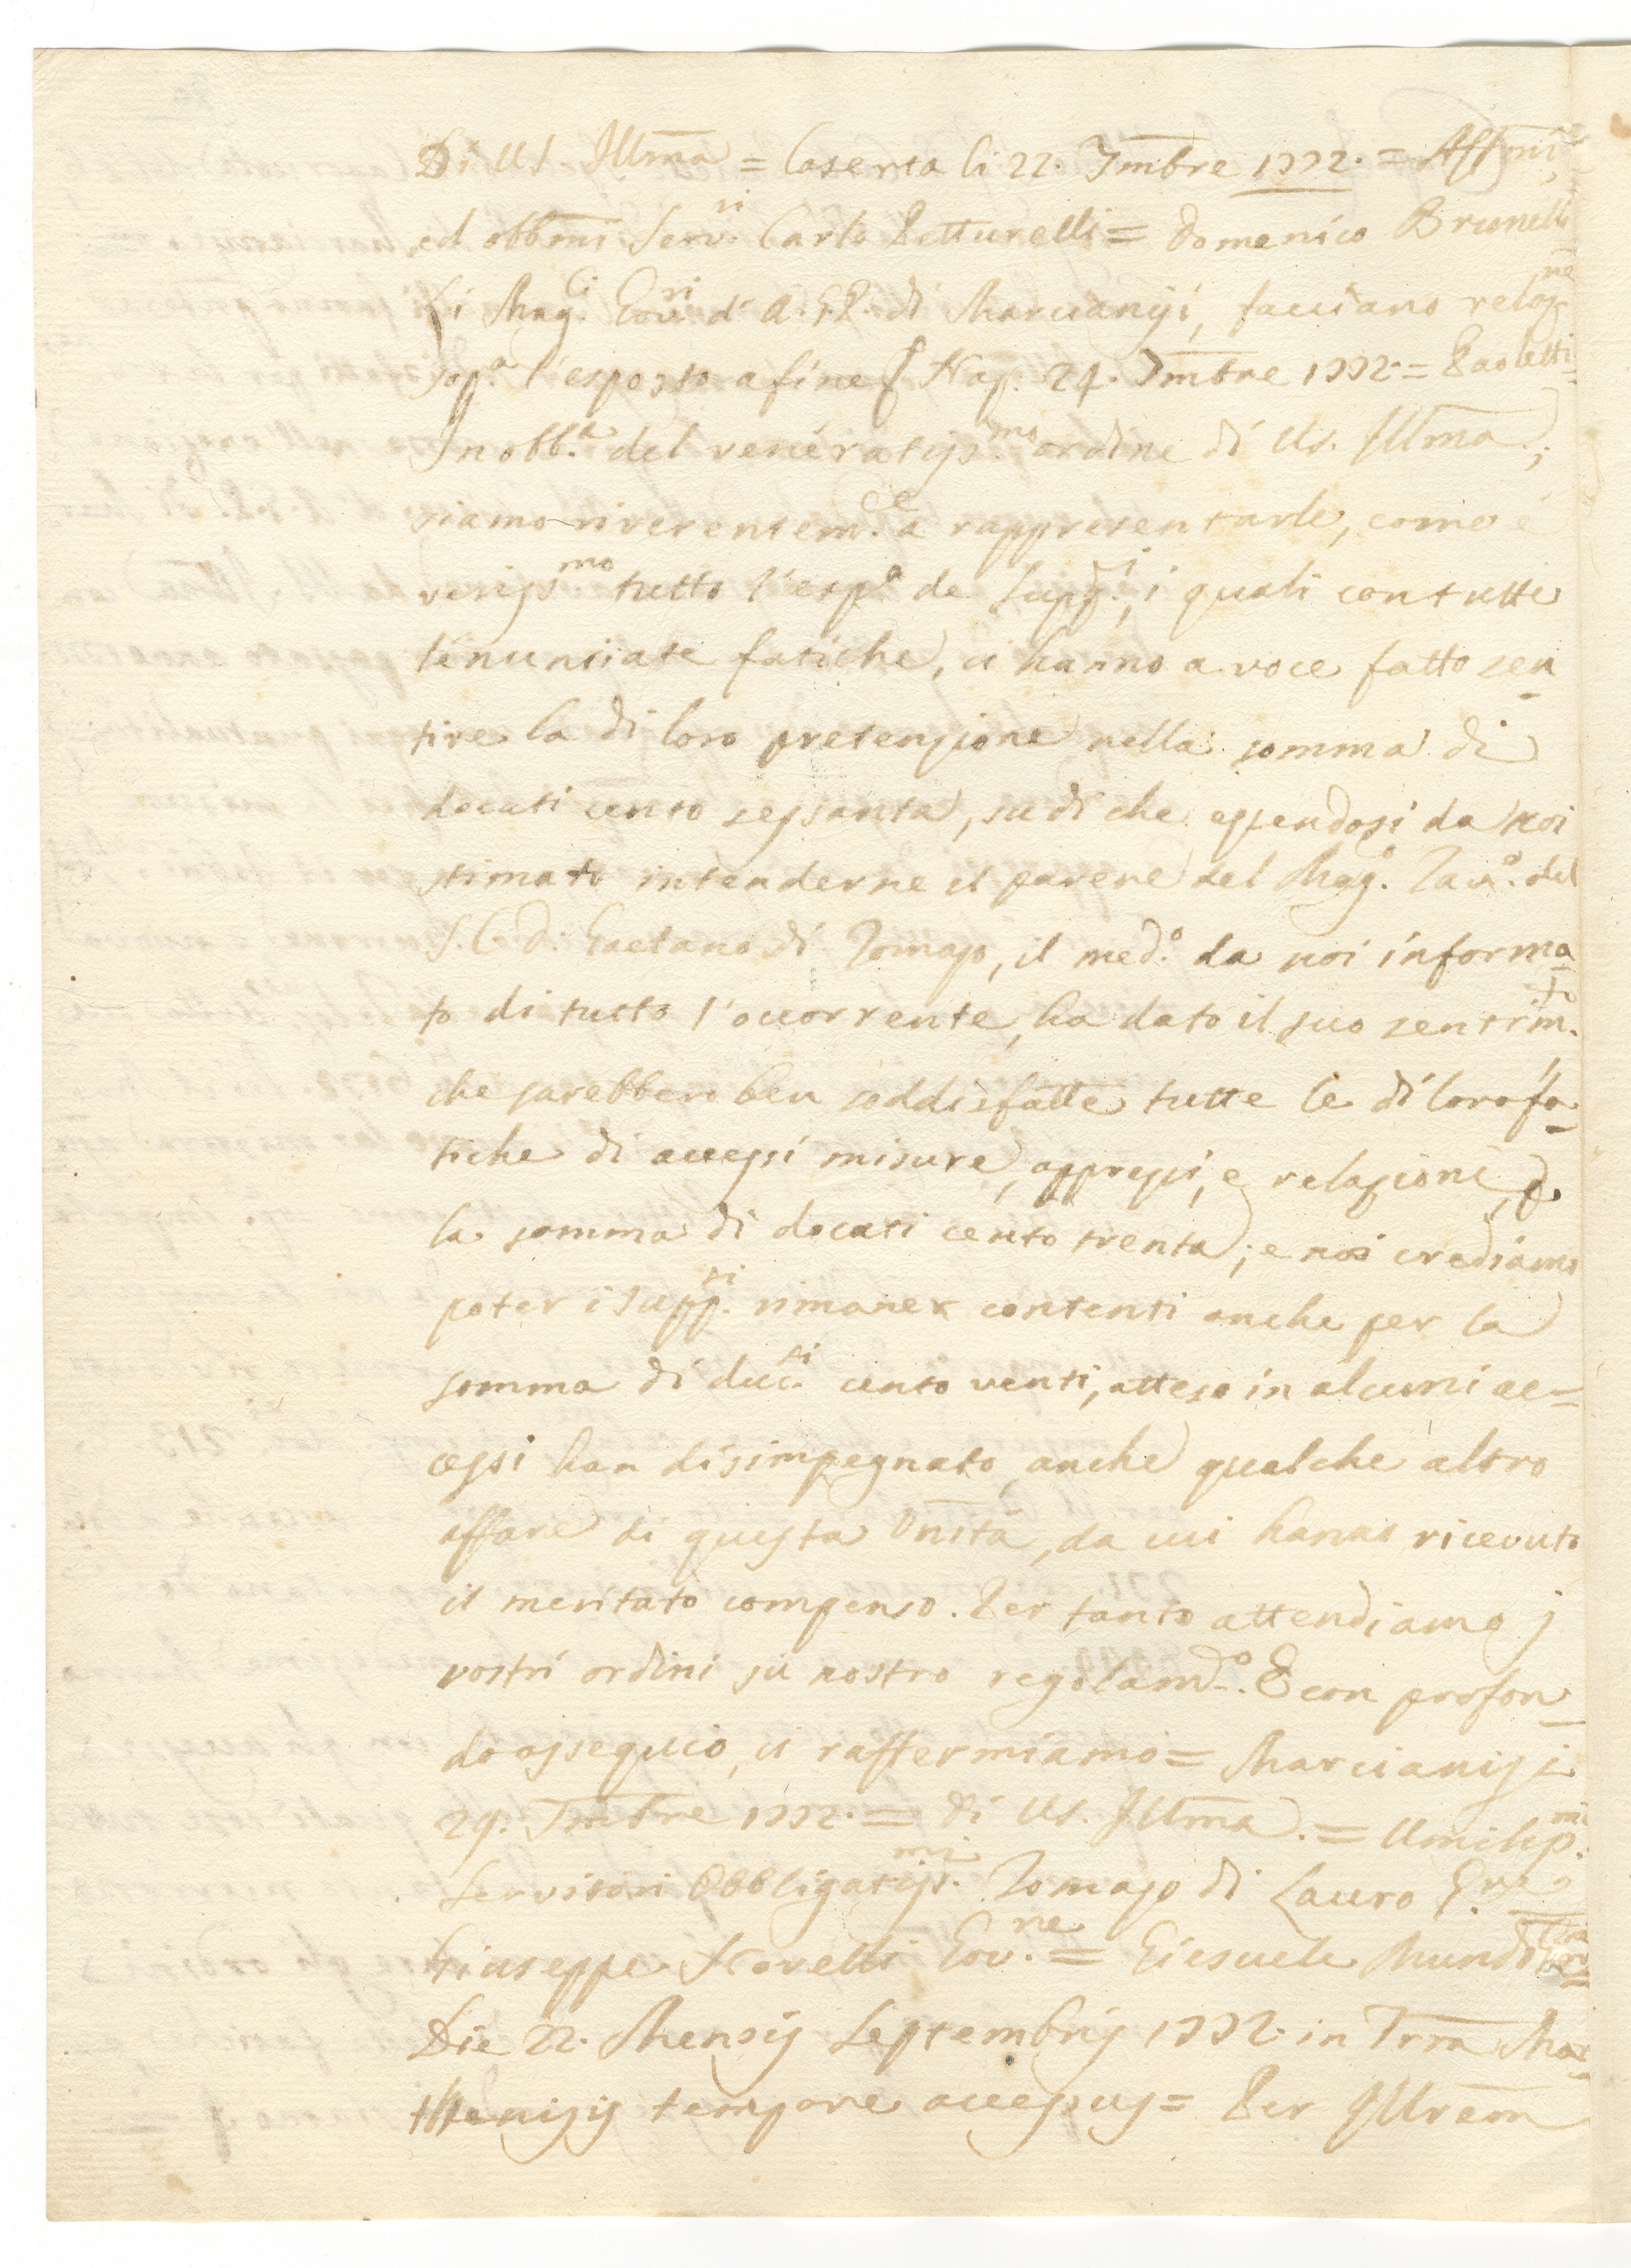 Di VS. Illma = Caserta li 22. 7mbre 1772. = Affmi,
ed obbmi Serv.ri Carlo Patturelli = Domenico Brunelli
Li Mag.ci Gov.ri d' A.G.P. di Marcianisi, facciano relaz.ne
sop.a l'esposto a fine & Nap. 24. 7mbre 1772 = Paoletti =
In obb.a del veneratiss.mo ordine di VS. Illma.;
siamo riverentem.te a rappresentarle, come è
veriss.mo tutto l'esp.o de Supp.ti, i quali con tutte
l'enunciate fatiche, ci hanno a voce fatto sen
tire la di loro pretenzione nella somma di
docati cento sessanta, su di che essendosi da noi
stimato intenderne il parere del Mag.o Tav.o del
S.C. d. Gaetano di Tomaso, il med.o da noi informa
to di tutto l'occorrente, ha dato il suo sentim.to
che sarebbero ben soddisfatte tutte le di loro fa
tiche di accessi misure, apprezzi, e relazione, p
la somma di docati cento trenta; e noi crediamo
poter i supp.ti rimaner contenti anche per la
somma di duc.ti cento venti, atteso in alcuni ac=
cessi han disimpegnato anche qualche altro
affare di questa Unità, da cui hanno ricevuto
il meritato compenso. Per tanto attendiamo j
vostri ordini su nostro regolam.to. E con profon
do ossequio, ci raffermiamo = Marcianisi
29. 7mbre 1772. = Di VS. Illma. = Umiliss.mi
Servitori Obbligatiss.mi Tomaso di Lauro
Giuseppe Novelli Gov.ne = Giesuele Mundo
Die 22. Mensis Septembris 1772. in Trra Mar
thenisij tempore accessus = Per Illrem